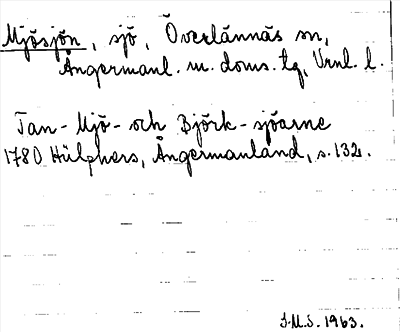 Mjösjön, sjö, Överlännäs sn,
Ångermanl. m. doms. tg, Vrnl. l.
Tan-Mjö- och Björk-sjöarne
1780 Hülphers, Ångermanland, s. 132.
I.M.S. 1963.